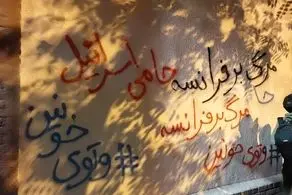 مرگ بر فرانسه حامی اسرائیل
مرگ بر فرانسه
#وتوی خونین
#وتوی خونین